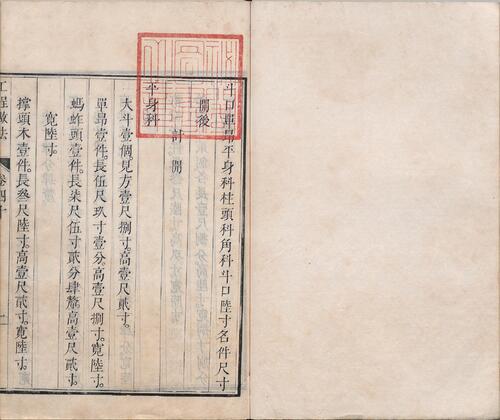 斗口單昂平身科柱頭科角科斗口陸寸名件尺寸
開後
計開
平身科
大斗壹個。見方壹尺捌寸。高壹尺貳寸。
單昂壹件。長伍尺玖寸壹分。高壹尺捌寸。寬陸寸。
螞蚱頭壹件。長柒尺伍寸貳分肆釐。高壹尺貳寸。
寬陸寸。
撐頭木壹件。長叁尺陸寸。高壹尺貳寸。寬陸寸。
工程做法 卷四十 一